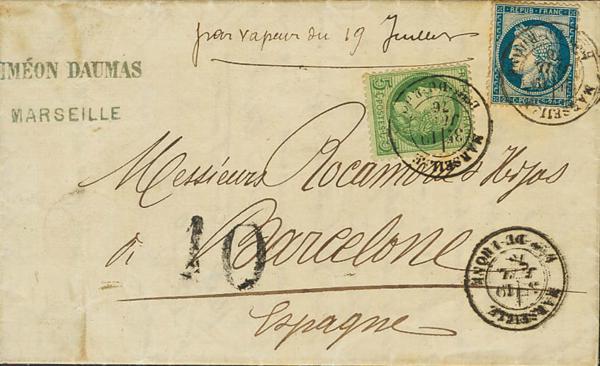 par vapeur du 19 Juillet
IMÉON DAUMAS
MARSEILLE
REPUB. FRANC.
5 C POSTES 5 C
MARSEILLE
MARSEILLE
Messieurs Rocamora & Hijos
à Barcelone
10
Espagne
MARSEILLE
BOUCHES-DU-RHONE